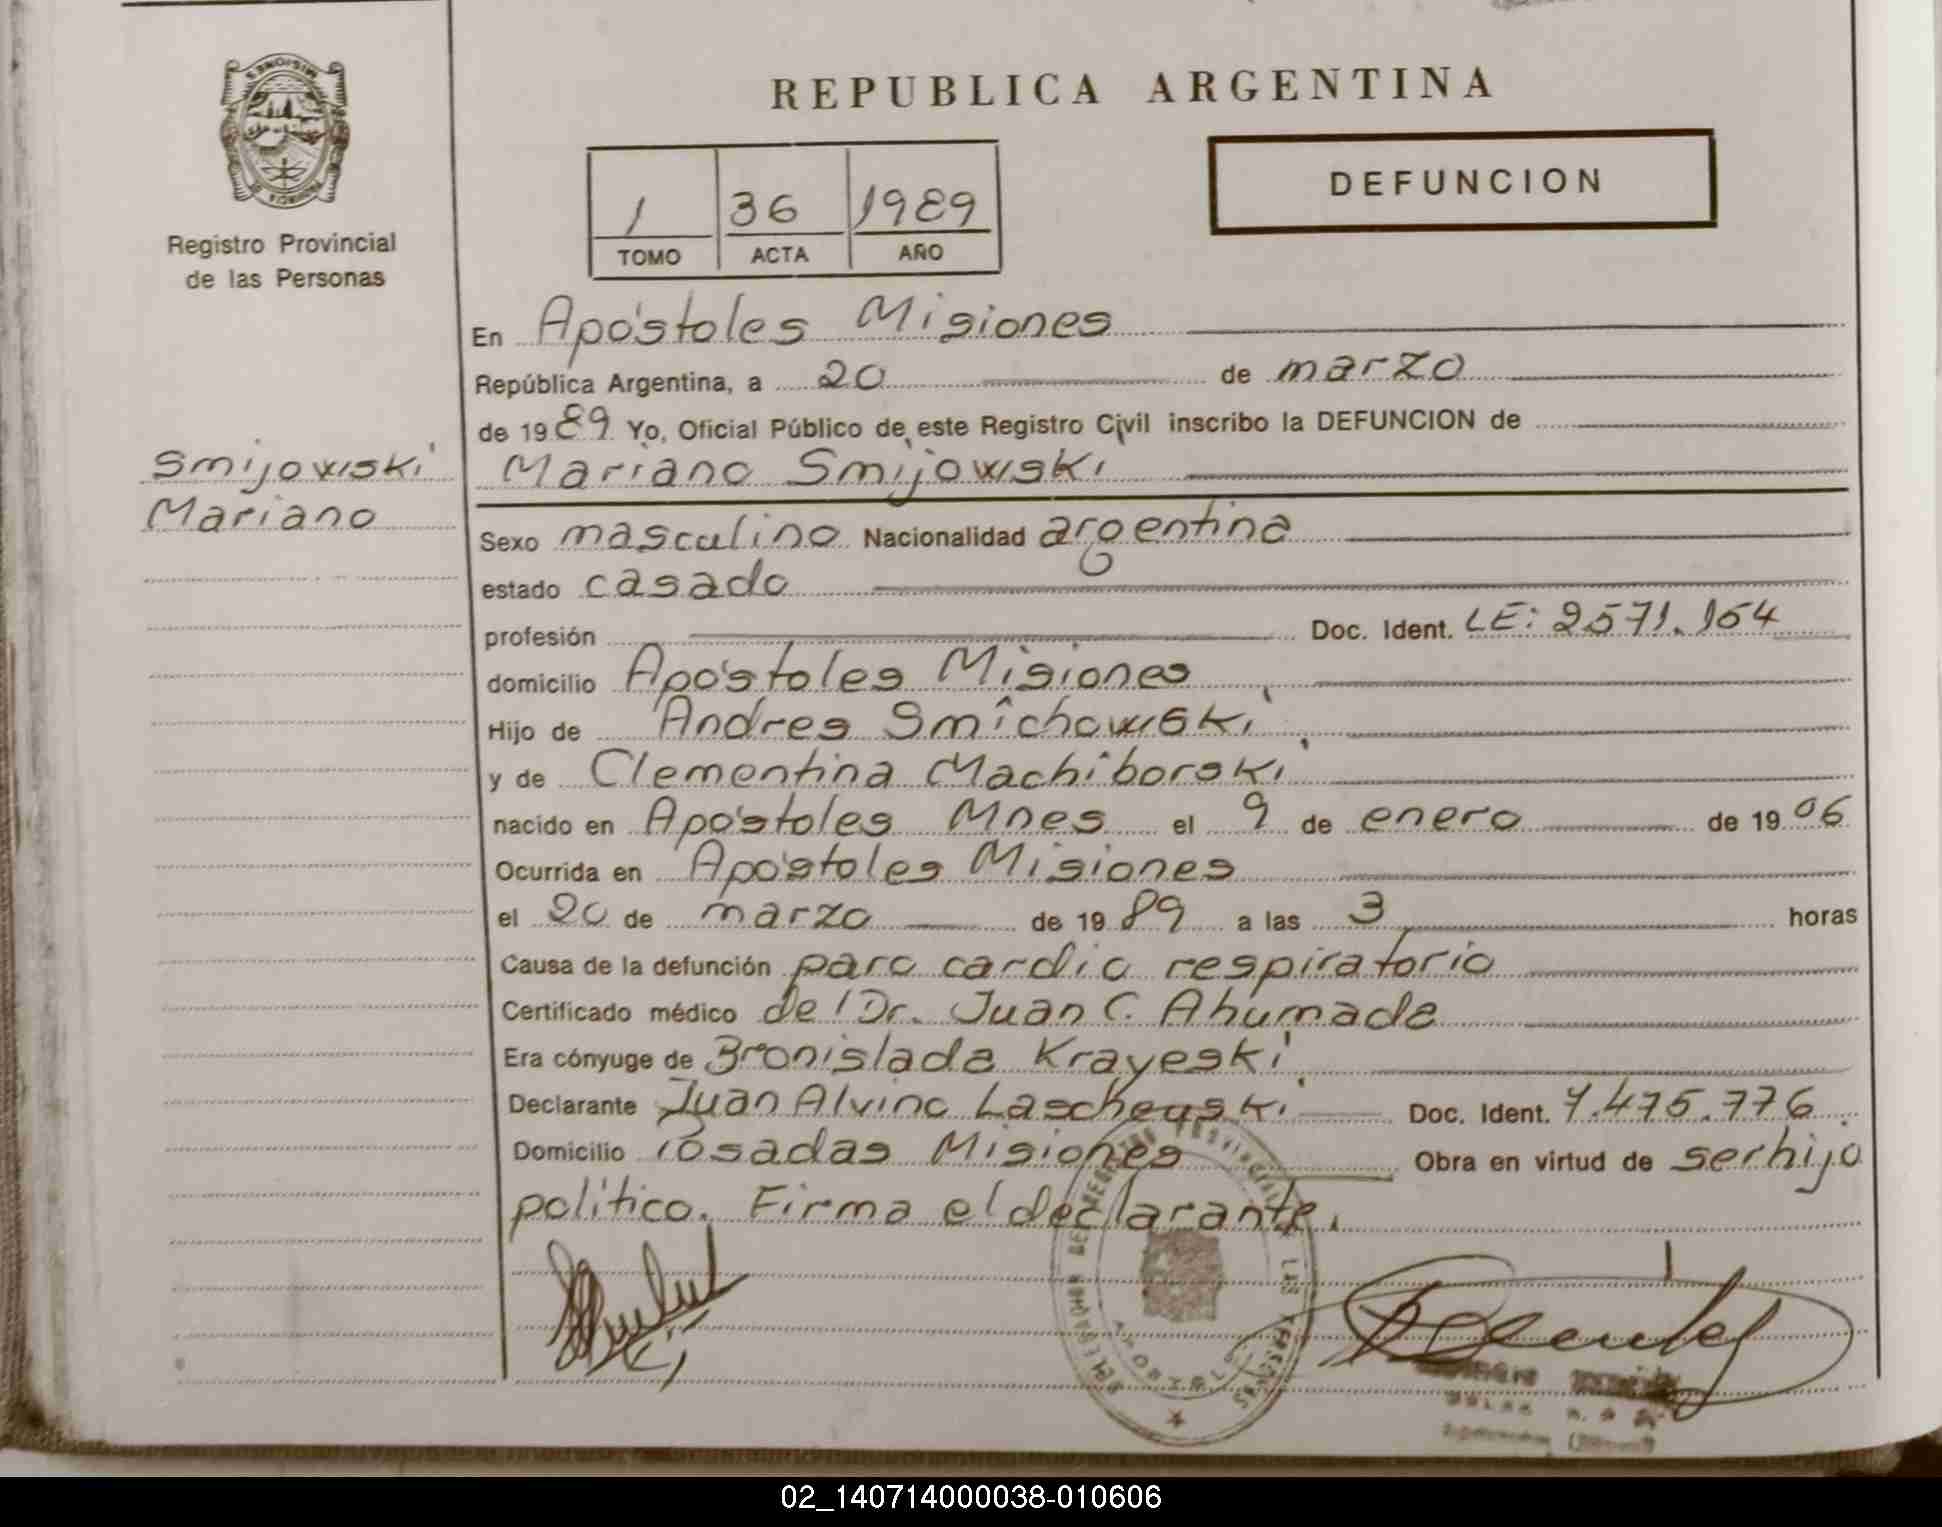 REPUBLICA ARGENTINA
MISIONES
PROVINCIA D
Registro Provincial
de las Personas
1 36 1989
TOMO ACTA AÑO
DEFUNCION
En Apóstoles Misiones
República Argentina, a 20 de marzo
de 1989 Yo, Oficial Público de este Registro Civil inscribo la DEFUNCION de
Smijowski
Mariano
Mariano Smijowski
Sexo masculino Nacionalidad argentina
estado casado
profesión Doc. Ident. LE: 2571.164
domicilio Apóstoles Misiones
Hijo de Andres Smichowski
y de Clementina Machiborski
nacido en Apóstoles Mnes el 9 de enero de 1906
Ocurrida en Apóstoles Misiones
el 20 de marzo de 1989 a las 3 horas
Causa de la defunción paro cardio respiratorio
Certificado médico del Dr. Juan C. Ahumada
Era cónyuge de Bronislada Krayeski
Declarante Juan Alvino Lascheuski Doc. Ident. 7.475.776
Domicilio Posadas Misiones Obra en virtud de ser hijo
político. Firma el declarante.
02_140714000038-010606